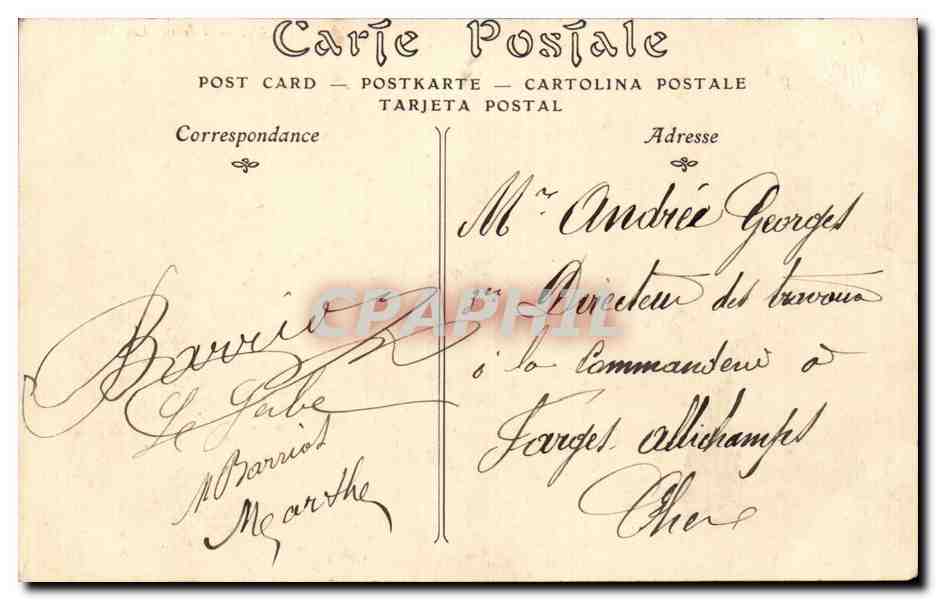 Carte Postale
POST CARD — POSTKARTE — CARTOLINA POSTALE
TARJETA POSTAL
Correspondance
Adresse
Mr Andrée Georges
Directeur des travaux
à la Commanderie à
Farges Allichamps
Cher
Barriot
Le
M Barriot
Marthe
CPAPHIL